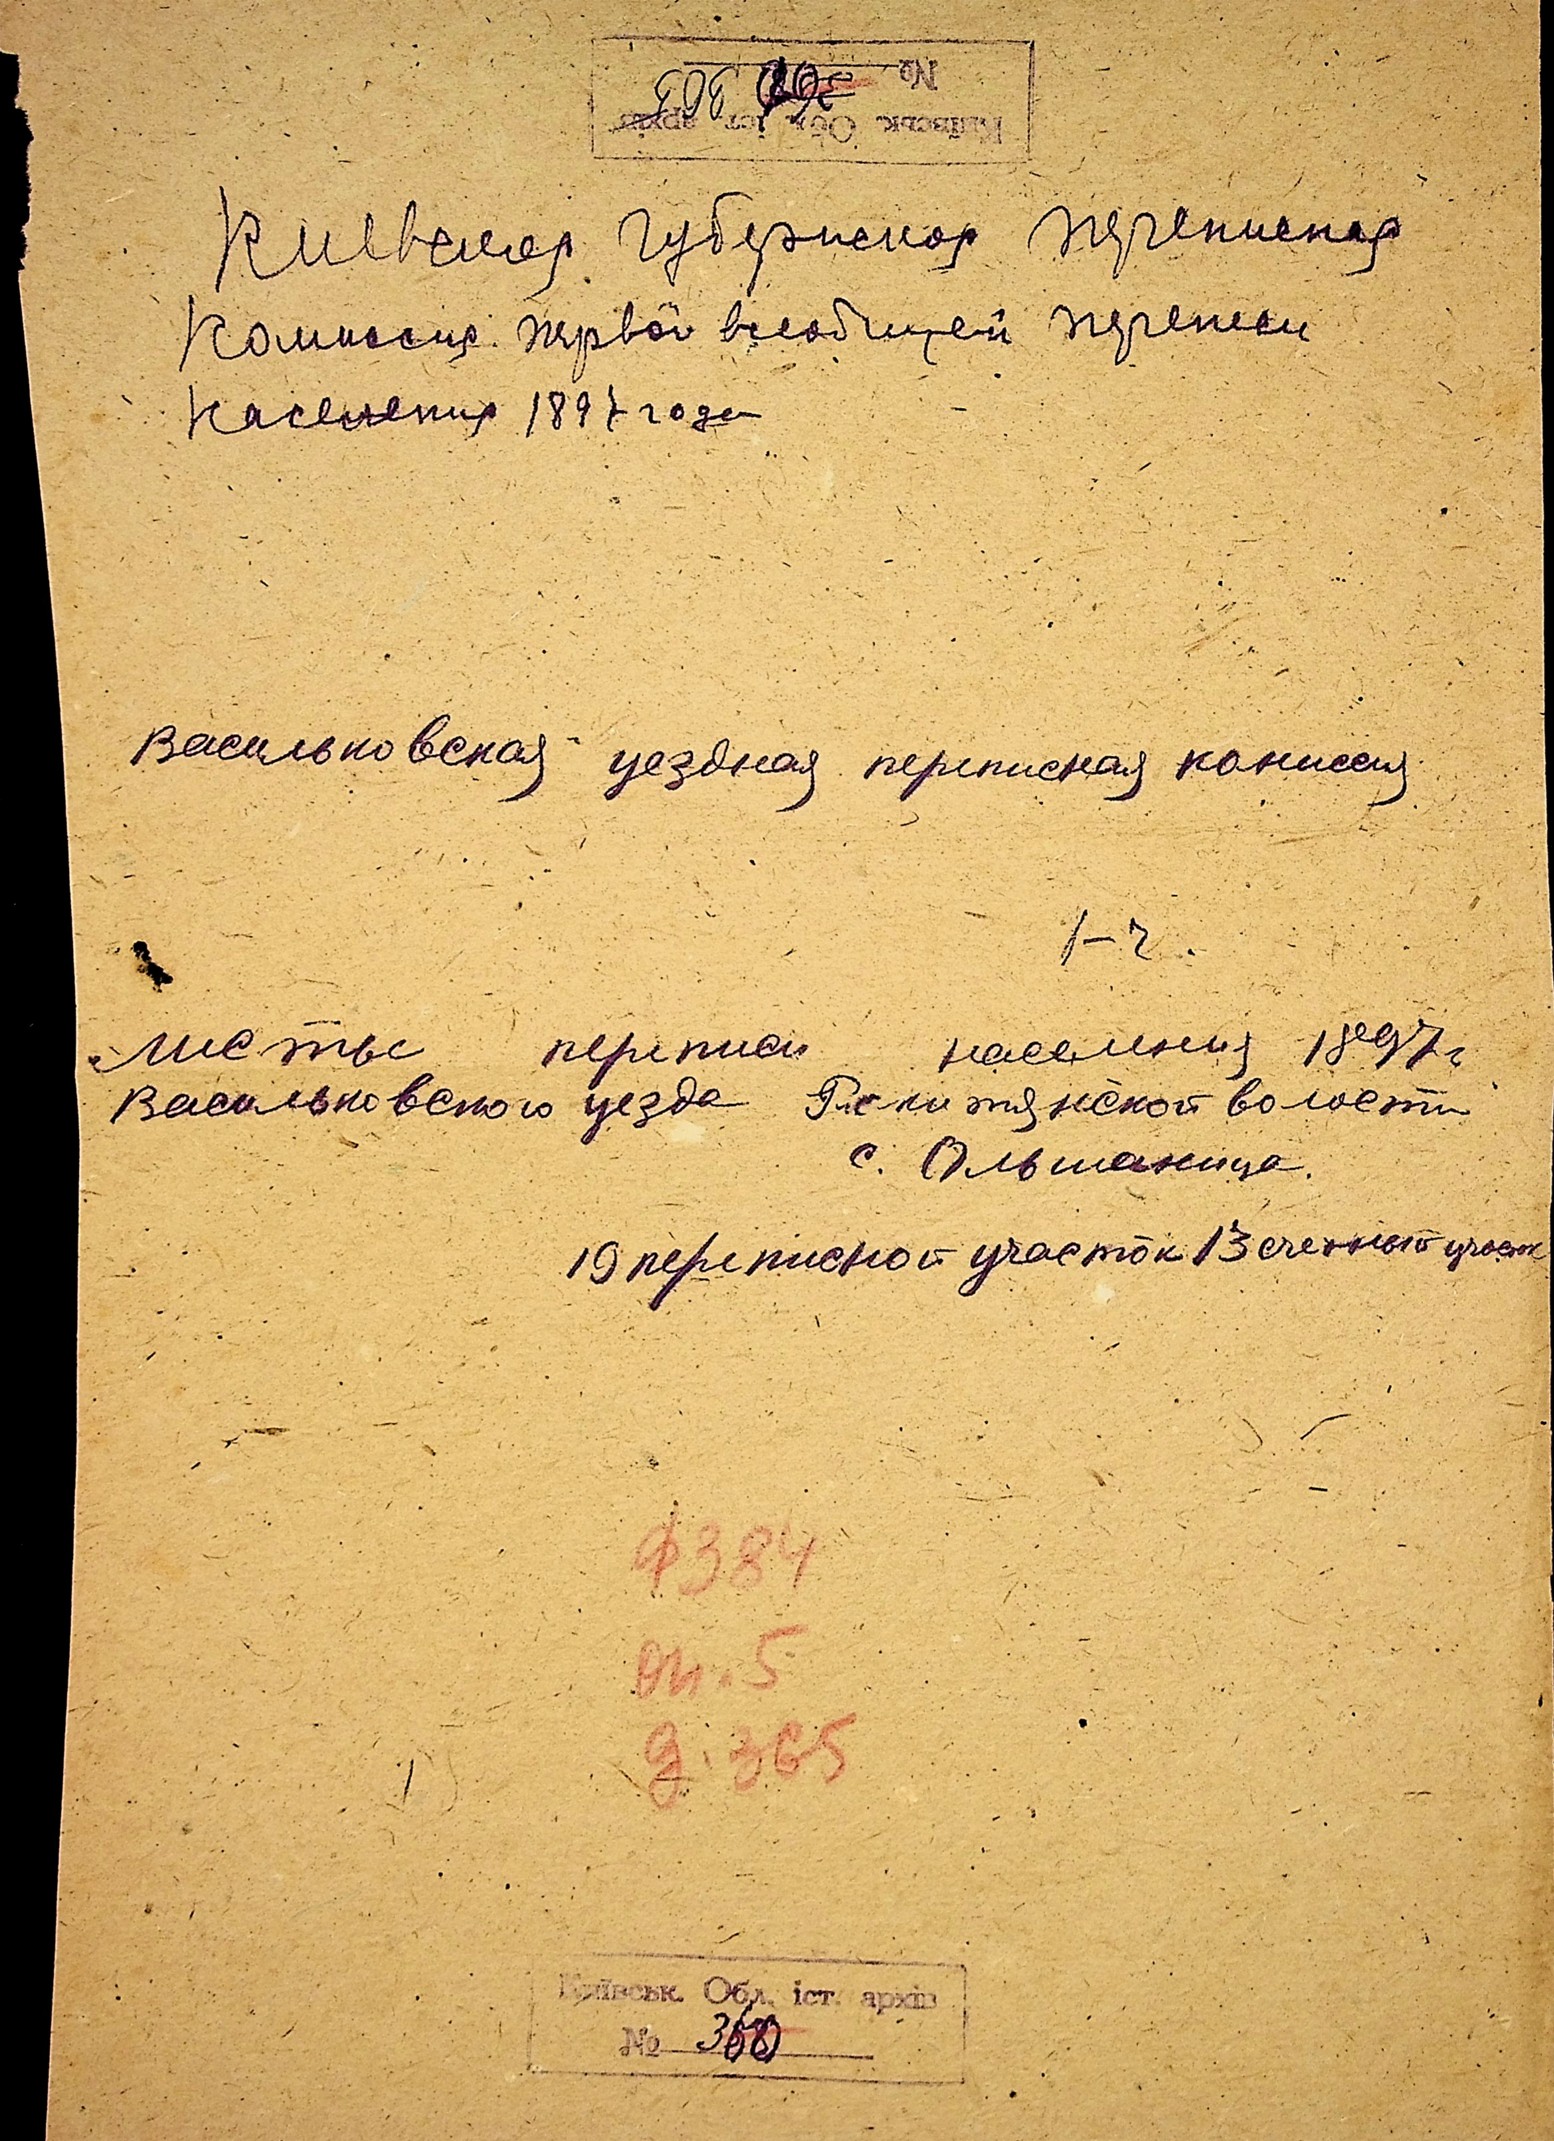 №
Київськ. Обл. іст. архів
Киевская губернская переписная
Комиссия первой всеобщей переписи
населения 1897 года
Васильковская уездная переписная комиссия
1-ч.
Листы переписи населения 1897 г
Васильковского уезда Рокитянской волости
с. Ольшаница.
19 переписной участок 13 счетный участк
ф 384
оп. 5
д. 365
Київськ. Обл. іст. архів
№